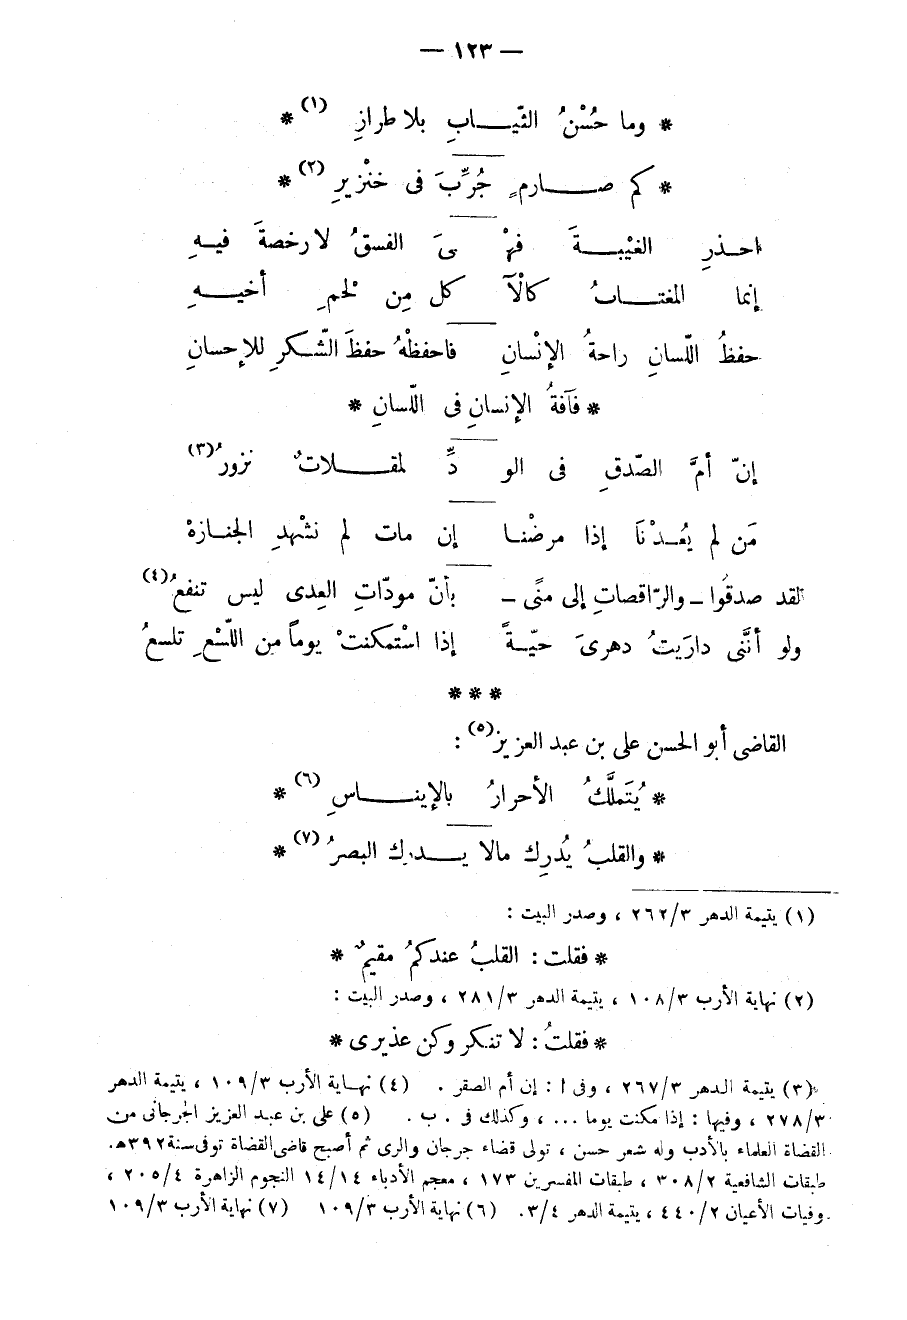 — ١٢٣ —
* وما حُسْنُ الثّيــابِ بلا طرازِ (١) *
* كم صــارمٍ جُرِّبَ فى خنْزيرِ (٢) *
احــذرِ الغيْبــةَ فهْىَ الفسقُ لا رخصةَ فيــهِ
إنما المغتــابُ كالْآكل مِن لحْمِ أخيــهِ
حفظُ اللّسانِ راحةُ الإنْسانِ فاحفظْهُ حفظَ الشّكرِ للإحسانِ
* فآفةُ الإنسانِ فى اللّسانِ *
إنّ أمَّ الصّدقِ فى الودِّ لمقــلاتٌ نزورُ (٣)
مَن لم يَعُــدْنَا إذا مرضْنــا إن مات لم نشْهدِ الجنــازهْ
لقد صدقُوا ــ والرّاقصاتِ إلى منًى ــ بأنّ مودّاتِ العِدى ليس تنفعُ (٤)
ولو أنَّنى داريتُ دهرىَ حيّــةً إذا اسْتمكنتْ يوماً مِن اللّسْعِ تلسعُ
* * *
القاضى أبو الحسن على بن عبد العزيز (٥) :
* يُتَملَّكُ الأحرارُ بالإينــاسِ (٦) *
* والقلبُ يُدرِك مالا يــدرك البصرُ (٧) *
(١) يتيمة الدهر ٢٦٢/٣ ، وصدر البيت :
* فقلت : القلبُ عندكمُ مقيمٌ *
(٢) نهاية الأرب ١٠٨/٣ ، يتيمة الدهر ٢٨١/٣ ، وصدر البيت :
* فقلتُ : لا تنكر وكن عذيرى *
(٣) يتيمة الدهر ٢٦٧/٣ ، وفى ا : إن أم الصقر . (٤) نهــاية الأرب ١٠٩/٣ ، يتيمة الدهر
٢٧٨/٣ ، وفيها : إذا مكنت يوما ... ، وكذلك فى . ب . (٥) على بن عبد العزيز الجرجانى من
القضاة العلماء بالأدب وله شعر حسن ، تولى قضاء جرجان والرى ثم أصبح قاضى القضاة توفى سنة ٣٩٢هـ.
طبقات الشافعية ٣٠٨/٢ ، طبقات المفسرين ١٧٣ ، معجم الأدباء ١٤/١٤ النجوم الزاهرة ٢٠٥/٤ ،
وفيات الأعيان ٤٤٠/٢ ، يتيمة الدهر ٣/٤. (٦) نهاية الأرب ١٠٩/٣ (٧) نهاية الأرب ١٠٩/٣